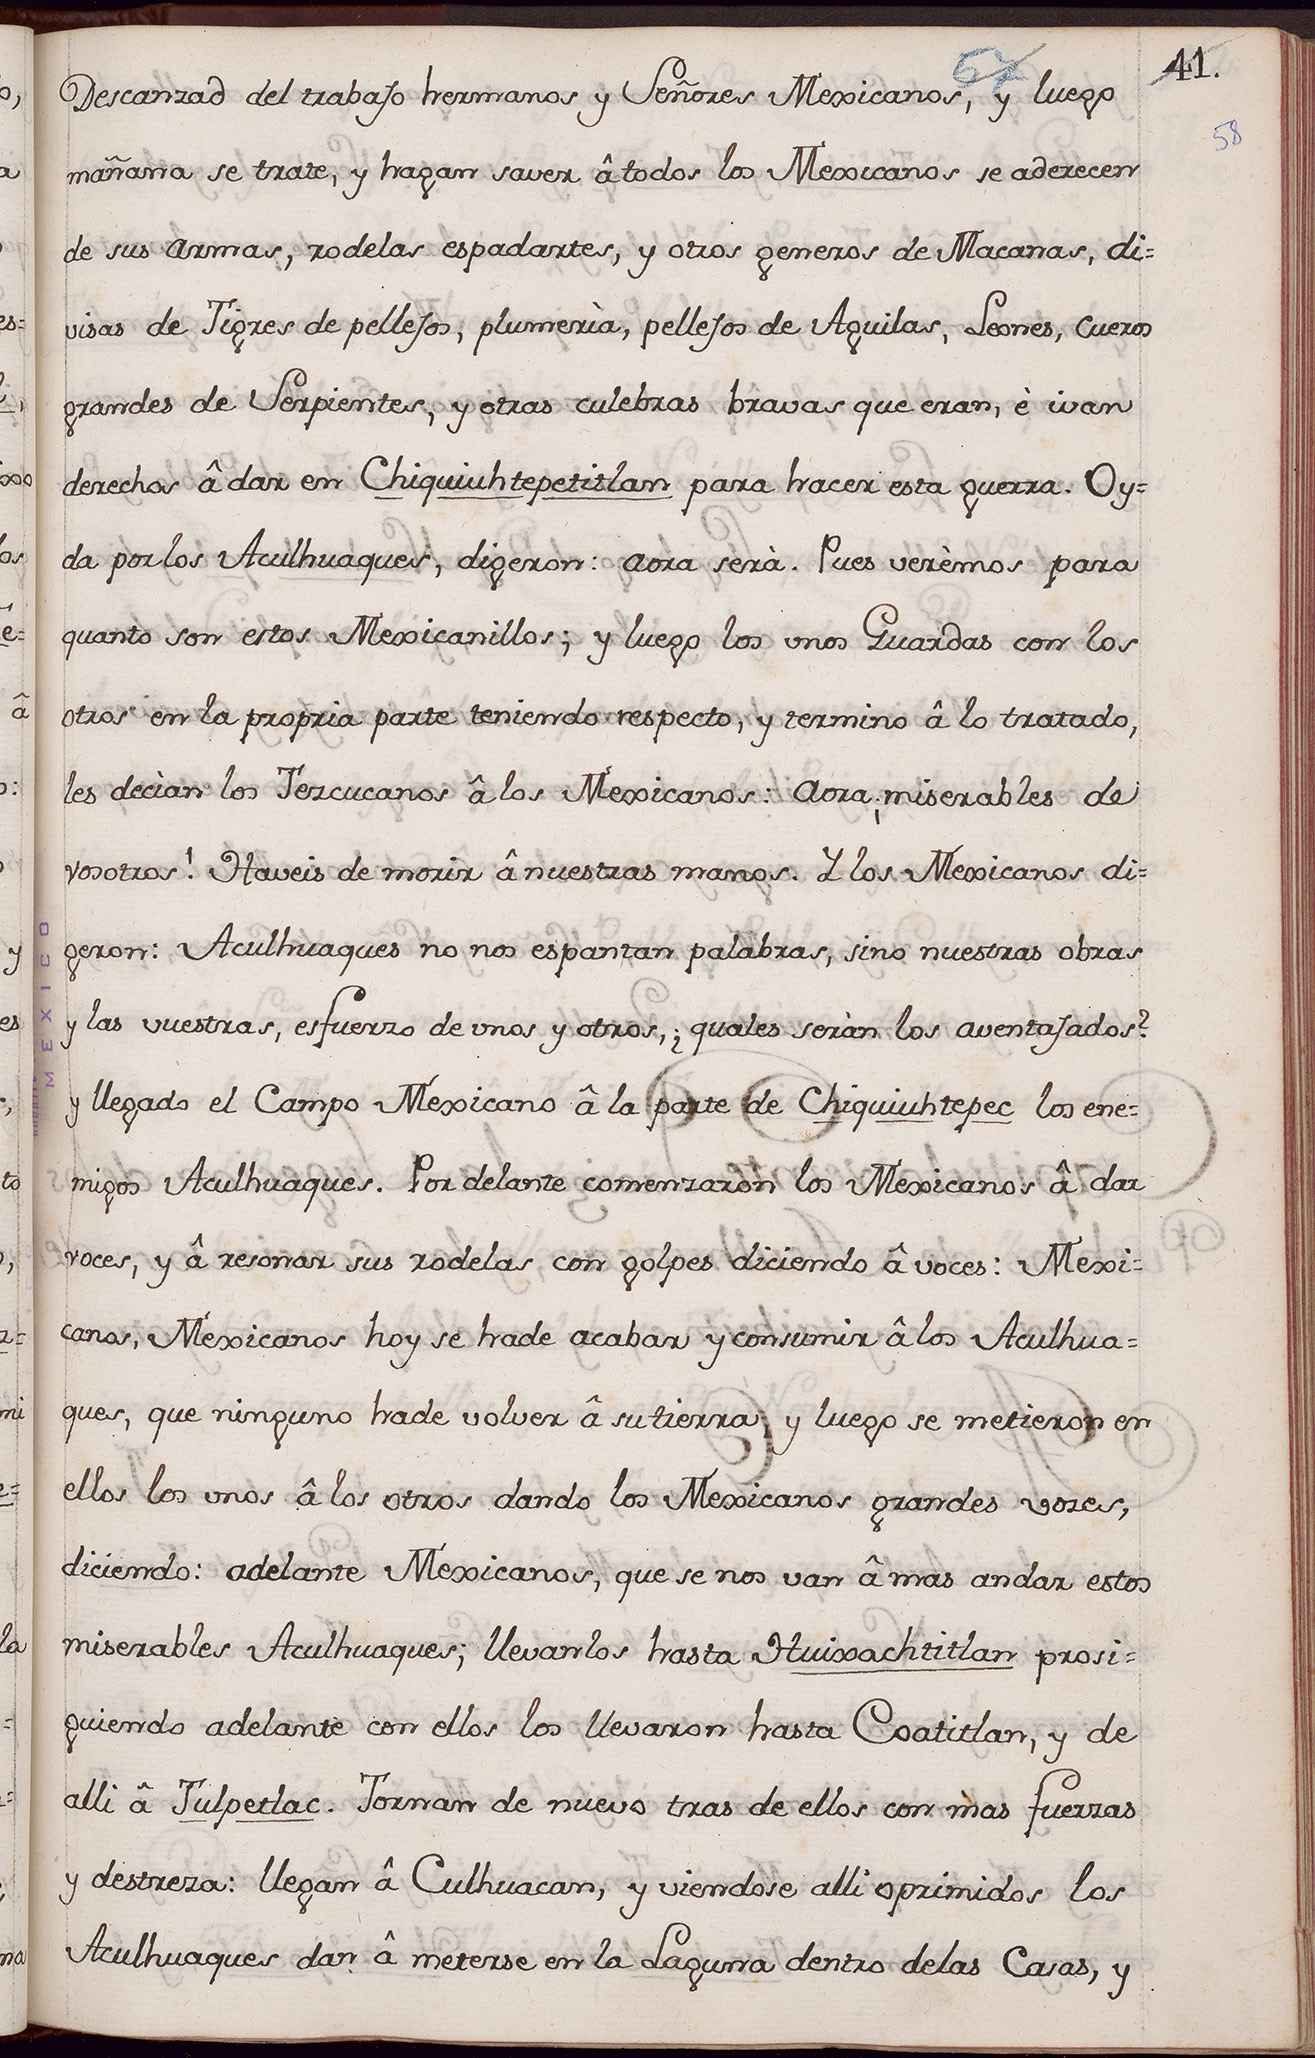 57 41.
58
Descanzad del trabajo hermanos y Señores Mexicanos, y luego
mañana se trate, y hagan saver â todos los Mexicanos se aderecen
de sus armas, rodelas espadartes, y otros generos de Macanas, di=
visas de Tigres de pellejos, plumerìa, pellejos de Aguilas, Leones, cueros
grandes de Serpientes, y otras culebras bravas que eran, è ivan
derechos â dar en Chiquiuhtepetitlan para hacer esta guerra. Oy=
da por los Aculhuaques, digeron: aora serà. Pues verèmos para
quanto son estos Mexicanillos; y luego los unos Guardas con los
otros en la propria parte teniendo respecto, y termino â lo tratado,
les decìan los Tezcucanos â los Mexicanos: Aora ¡miserables de
vosotros! Haveis de morir â nuestras manos. Y los Mexicanos di=
geron: Aculhuaques no nos espantan palabras, sino nuestras obras
y las vuestras, esfuerzo de unos y otros, ¿quales seràn los aventajados?
y llegado el Campo Mexicano â la parte de Chiquiuhtepec los ene=
migos Aculhuaques. Por delante comenzaron los Mexicanos â dar
voces, y â resonar sus rodelas, con golpes diciendo â voces: Mexi=
canos, Mexicanos hoy se hade acabar y consumir â los Aculhua=
ques, que ninguno hade volver â su tierra, y luego se metieron en
ellos los unos â los otros dando los Mexicanos grandes vozes,
diciendo: adelante Mexicanos, que se nos van â mas andar estos
miserables Aculhuaques; llevanlos hasta Huixachtitlan prosi=
guiendo adelante con ellos los llevaron hasta Coatitlan, y de
alli â Tulpetlac. Tornan de nuevo tras de ellos con mas fuerzas
y destreza: llegan â Culhuacan, y viendose alli oprimidos los
Aculhuaques dan â meterse en la Laguna dentro delas Casas, y
MEXICO